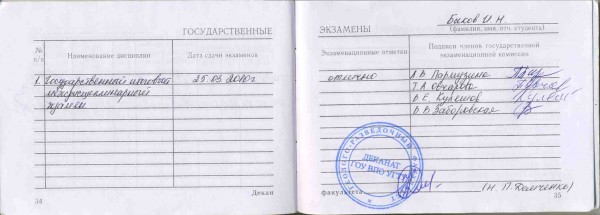 ГОСУДАРСТВЕННЫЕ
№ п/п
Наименование дисциплин
Дата сдачи экзаменов
1. Государственный итоговый
междисциплинарный
экзамен
25.03.2010г
34
Декан
ЭКЗАМЕНЫ
Быков И.Н.
(фамилия, имя, отч. студента)
Экзаменационные отметки
Подписи членов государственной
экзаменационной комиссии
отлично
Л.В.
Т.А.
В.Е. Кулешов
В.В. Заборовская
ГЕОЛОГО-РАЗВЕДОЧНЫЙ
ДЕКАНАТ
ГОУ ВПО УГТУ
факультета
35